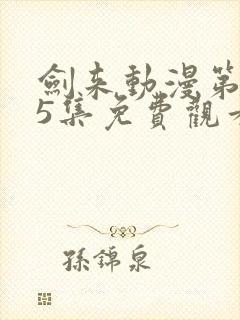 劍來動漫第
5集免費觀看
孫錦泉